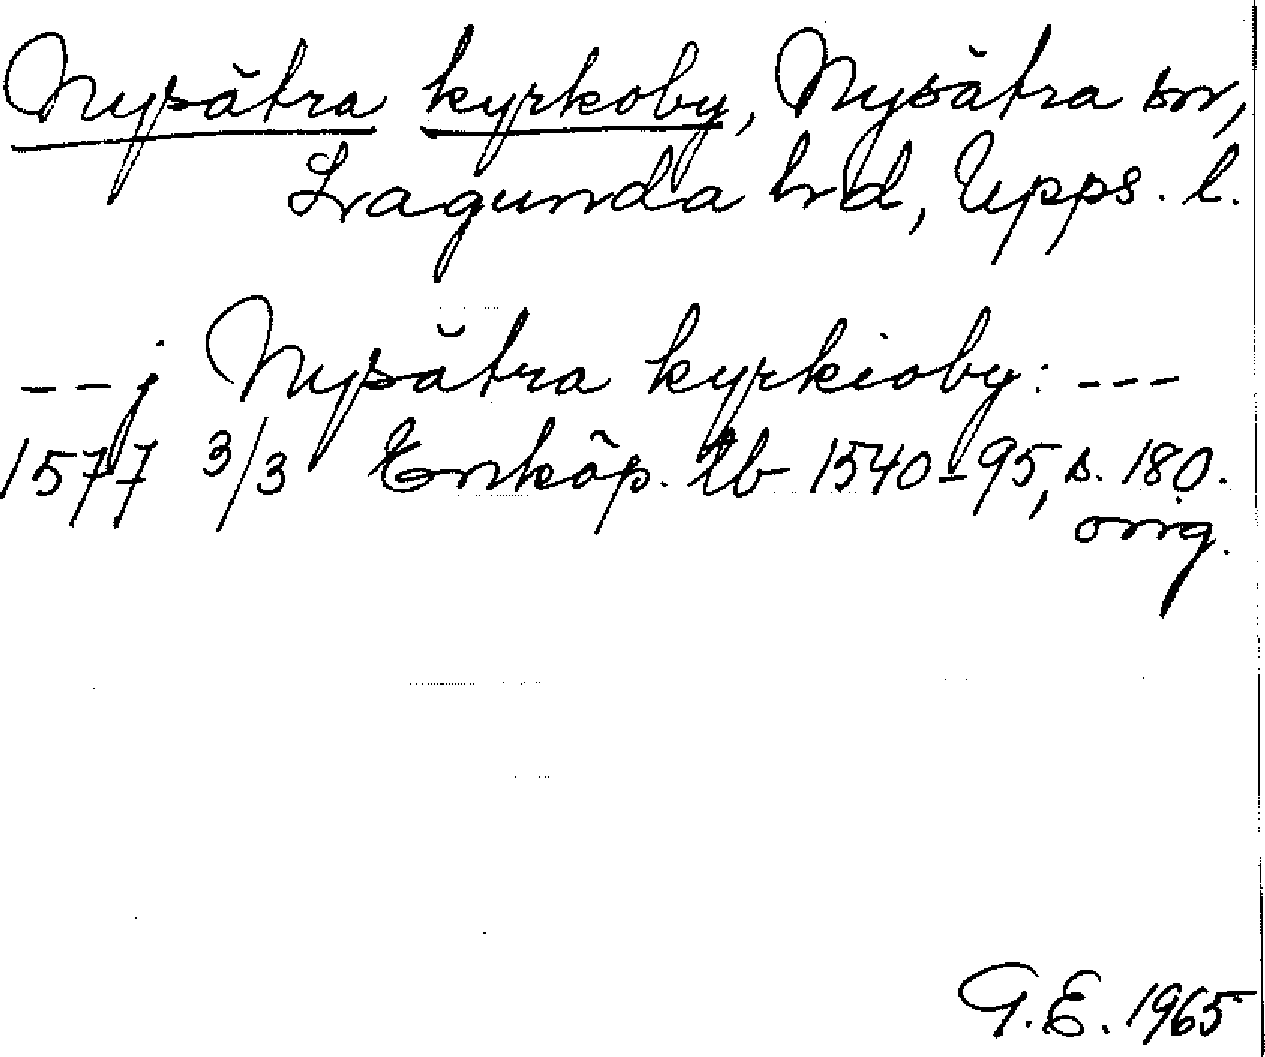 Nysätra kyrkoby, Nysätra sn,
Lagunda hd, Upps. l.
--j Nysätra kyrkioby: ---
1577 3/3 Enköp. tb 1540-95, s. 180.
orig.
G.E. 1965